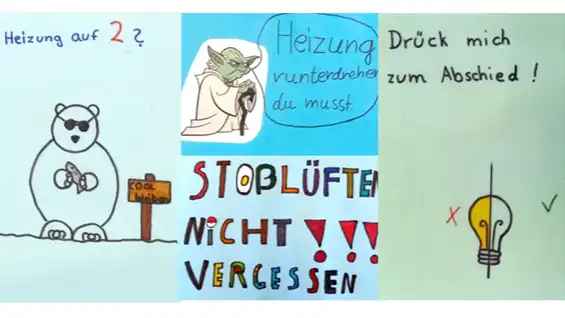 Heizung auf 2 ?
COOL
bleiben
Heizung
runterdrehen
du musst.
STOẞLÜFTEN
NICHT !!!
VERGESSEN
Drück mich
zum Abschied !